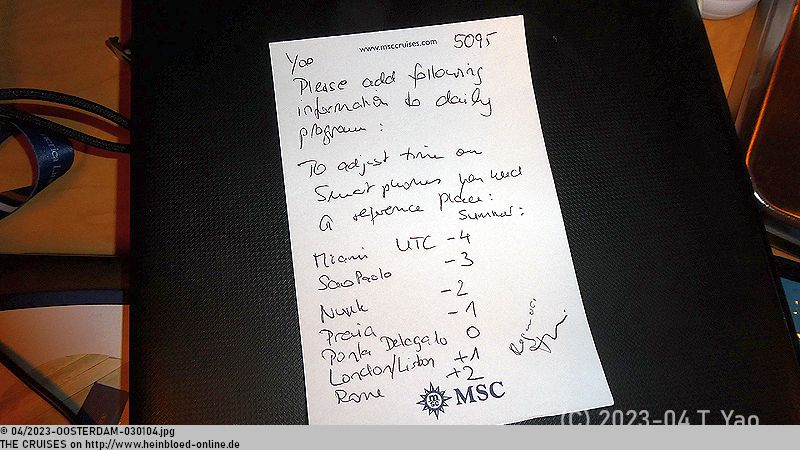 www.msccruises.com 5095
You
Please add following
information to daily
program:
To adjust time on
Smart phones you need
a reference place:
Summer:
Miami UTC -4
Sao Paolo -3
Nuuk -2
Praia -1
Ponta Delegato 0
London/Lisbon +1
Rome +2
MSC
(C) 2023-04 T. Yao
© 04/2023-OOSTERDAM-030104.jpg
THE CRUISES on http://www.heinbloed-online.de